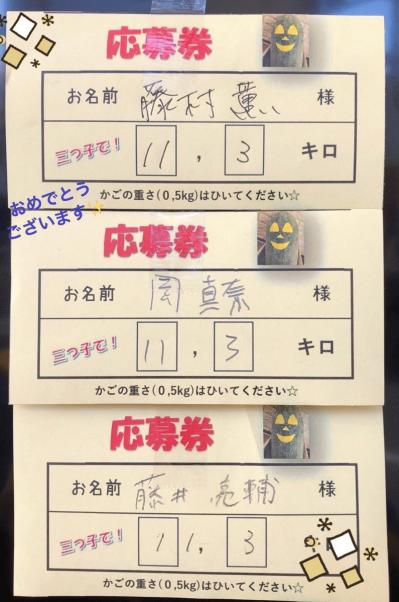 応募券
お名前 藤村 薫 様
三つ子で! 11, 3 キロ
かごの重さ(0,5kg)はひいてください☆
おめでとう
ございます✨
応募券
お名前 岡 真奈 様
三つ子で! 11, 3 キロ
かごの重さ(0,5kg)はひいてください☆
応募券
お名前 藤井 亮輔 様
三つ子で! 11, 3
かごの重さ(0,5kg)はひいてください☆